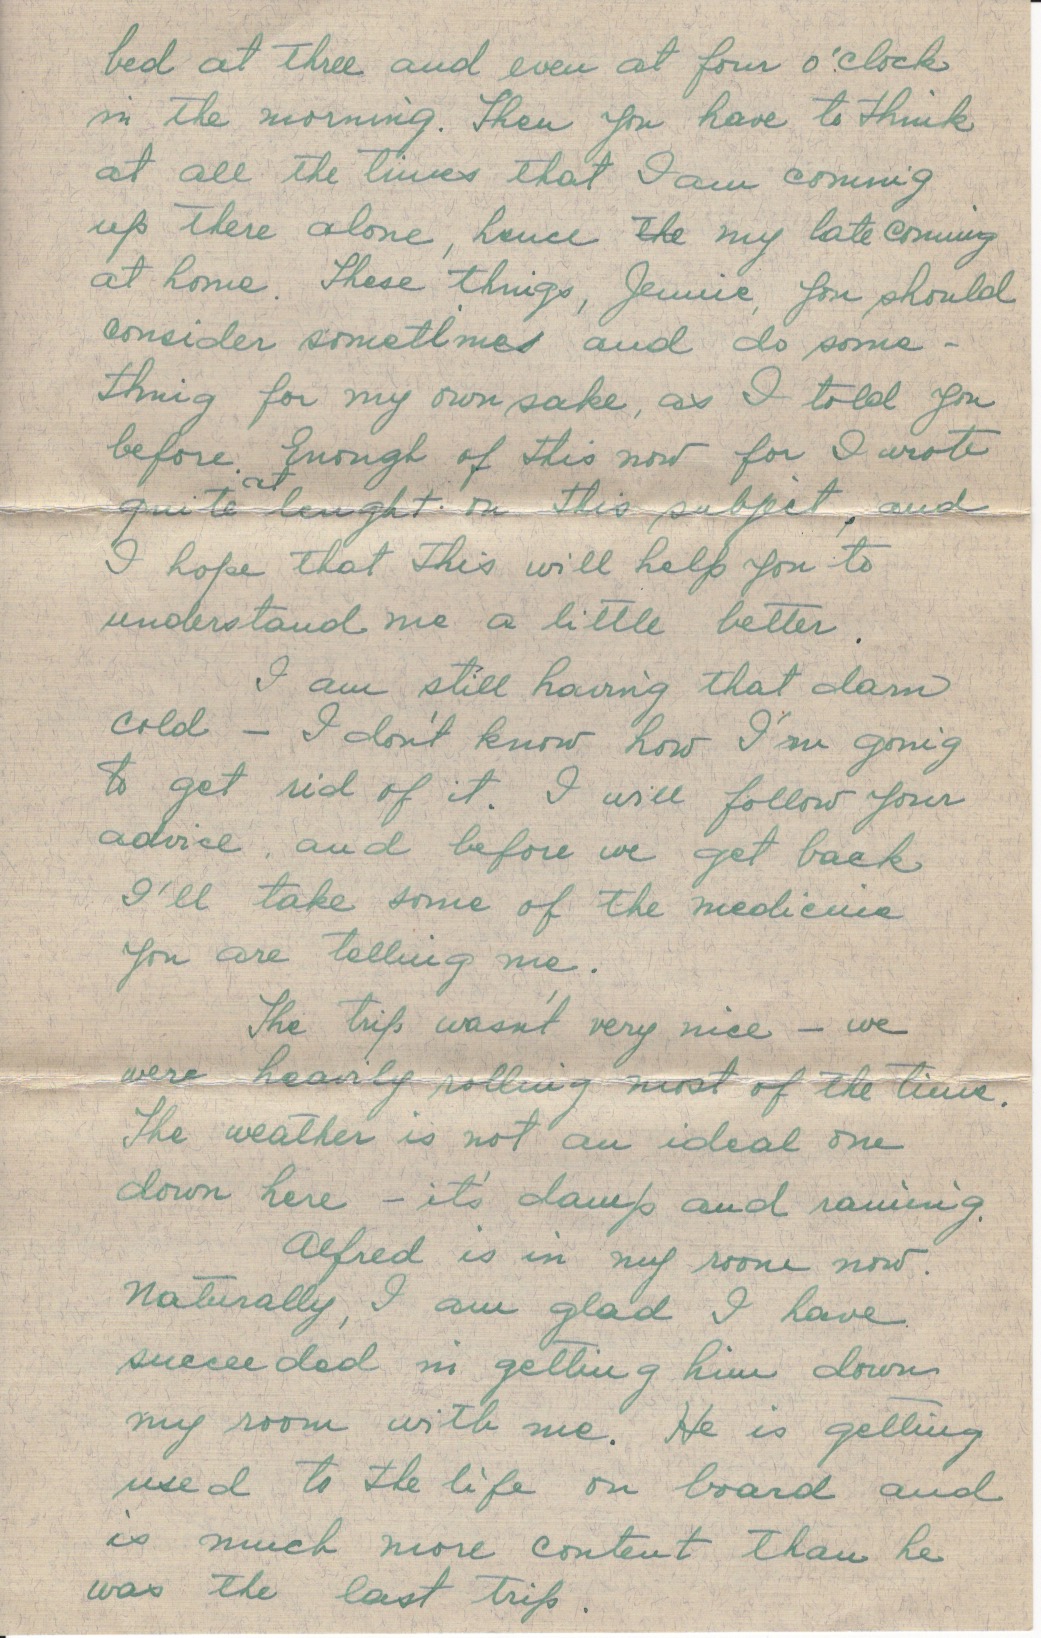 bed at three and even at four o'clock
in the morning. Then you have to think
at all the times that I am coming
up there alone, hence the my late coming
at home. These things, Jennie, you should
consider sometimes and do some-
thing for my own sake, as I told you
before. Enough of this now for I wrote
quite at lenght on this subject, and
I hope that this will help you to
understand me a little better.
I am still having that darn
cold - I don't know how I'm going
to get rid of it. I will follow your
advice, and before we get back
I'll take some of the medicine
you are telling me.
The trip wasn't very nice - we
were heavily rolling most of the time.
The weather is not an ideal one
down here - it's damp and raining.
Alfred is in my room now.
Naturally, I am glad I have
succeeded in getting him down
my room with me. He is getting
used to the life on board and
is much more content than he
was the last trip.